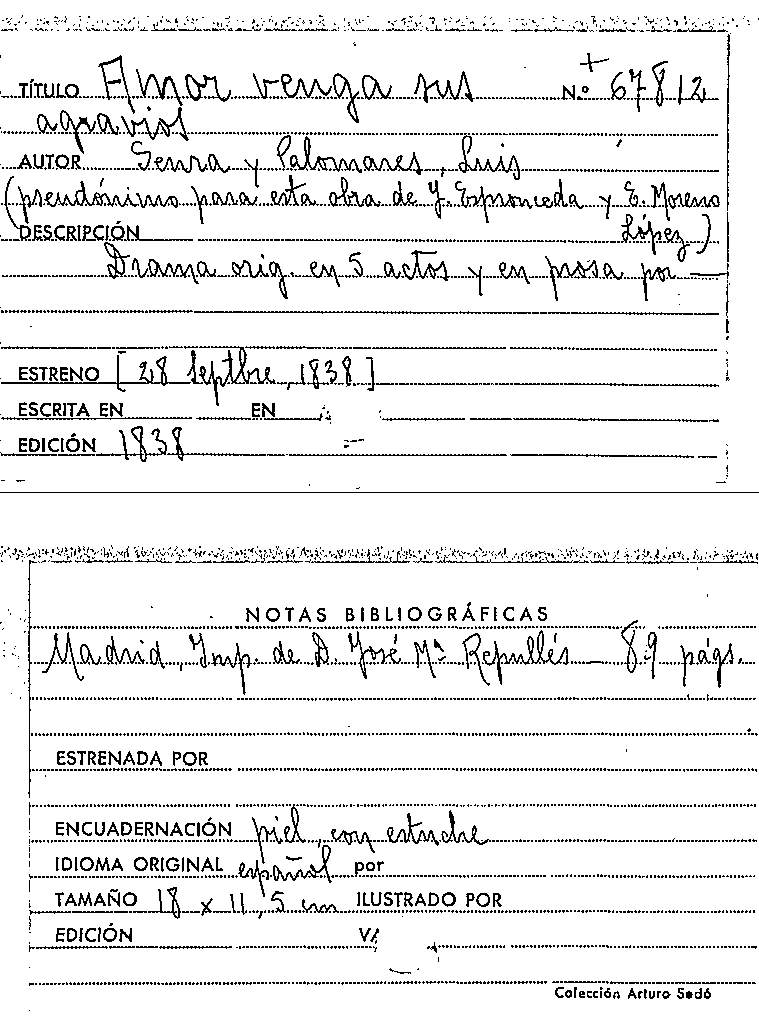 TÍTULO Amor venga sus N.º 67812
agravios
AUTOR Senra y Palomares, Luis
(pseudónimo para esta obra de J. Espronceda y E. Moreno
DESCRIPCIÓN López)
Drama orig. en 5 actos y en prosa por —
ESTRENO [28 Septbre, 1838]
ESCRITA EN EN
EDICIÓN 1838
NOTAS BIBLIOGRÁFICAS
Madrid, Imp. de D. José Mª Repullés — 89 págs.
ESTRENADA POR
ENCUADERNACIÓN piel, con estuche
IDIOMA ORIGINAL español por
TAMAÑO 18 x 11,5 cm ILUSTRADO POR
EDICIÓN
Colección Arturo Sedó